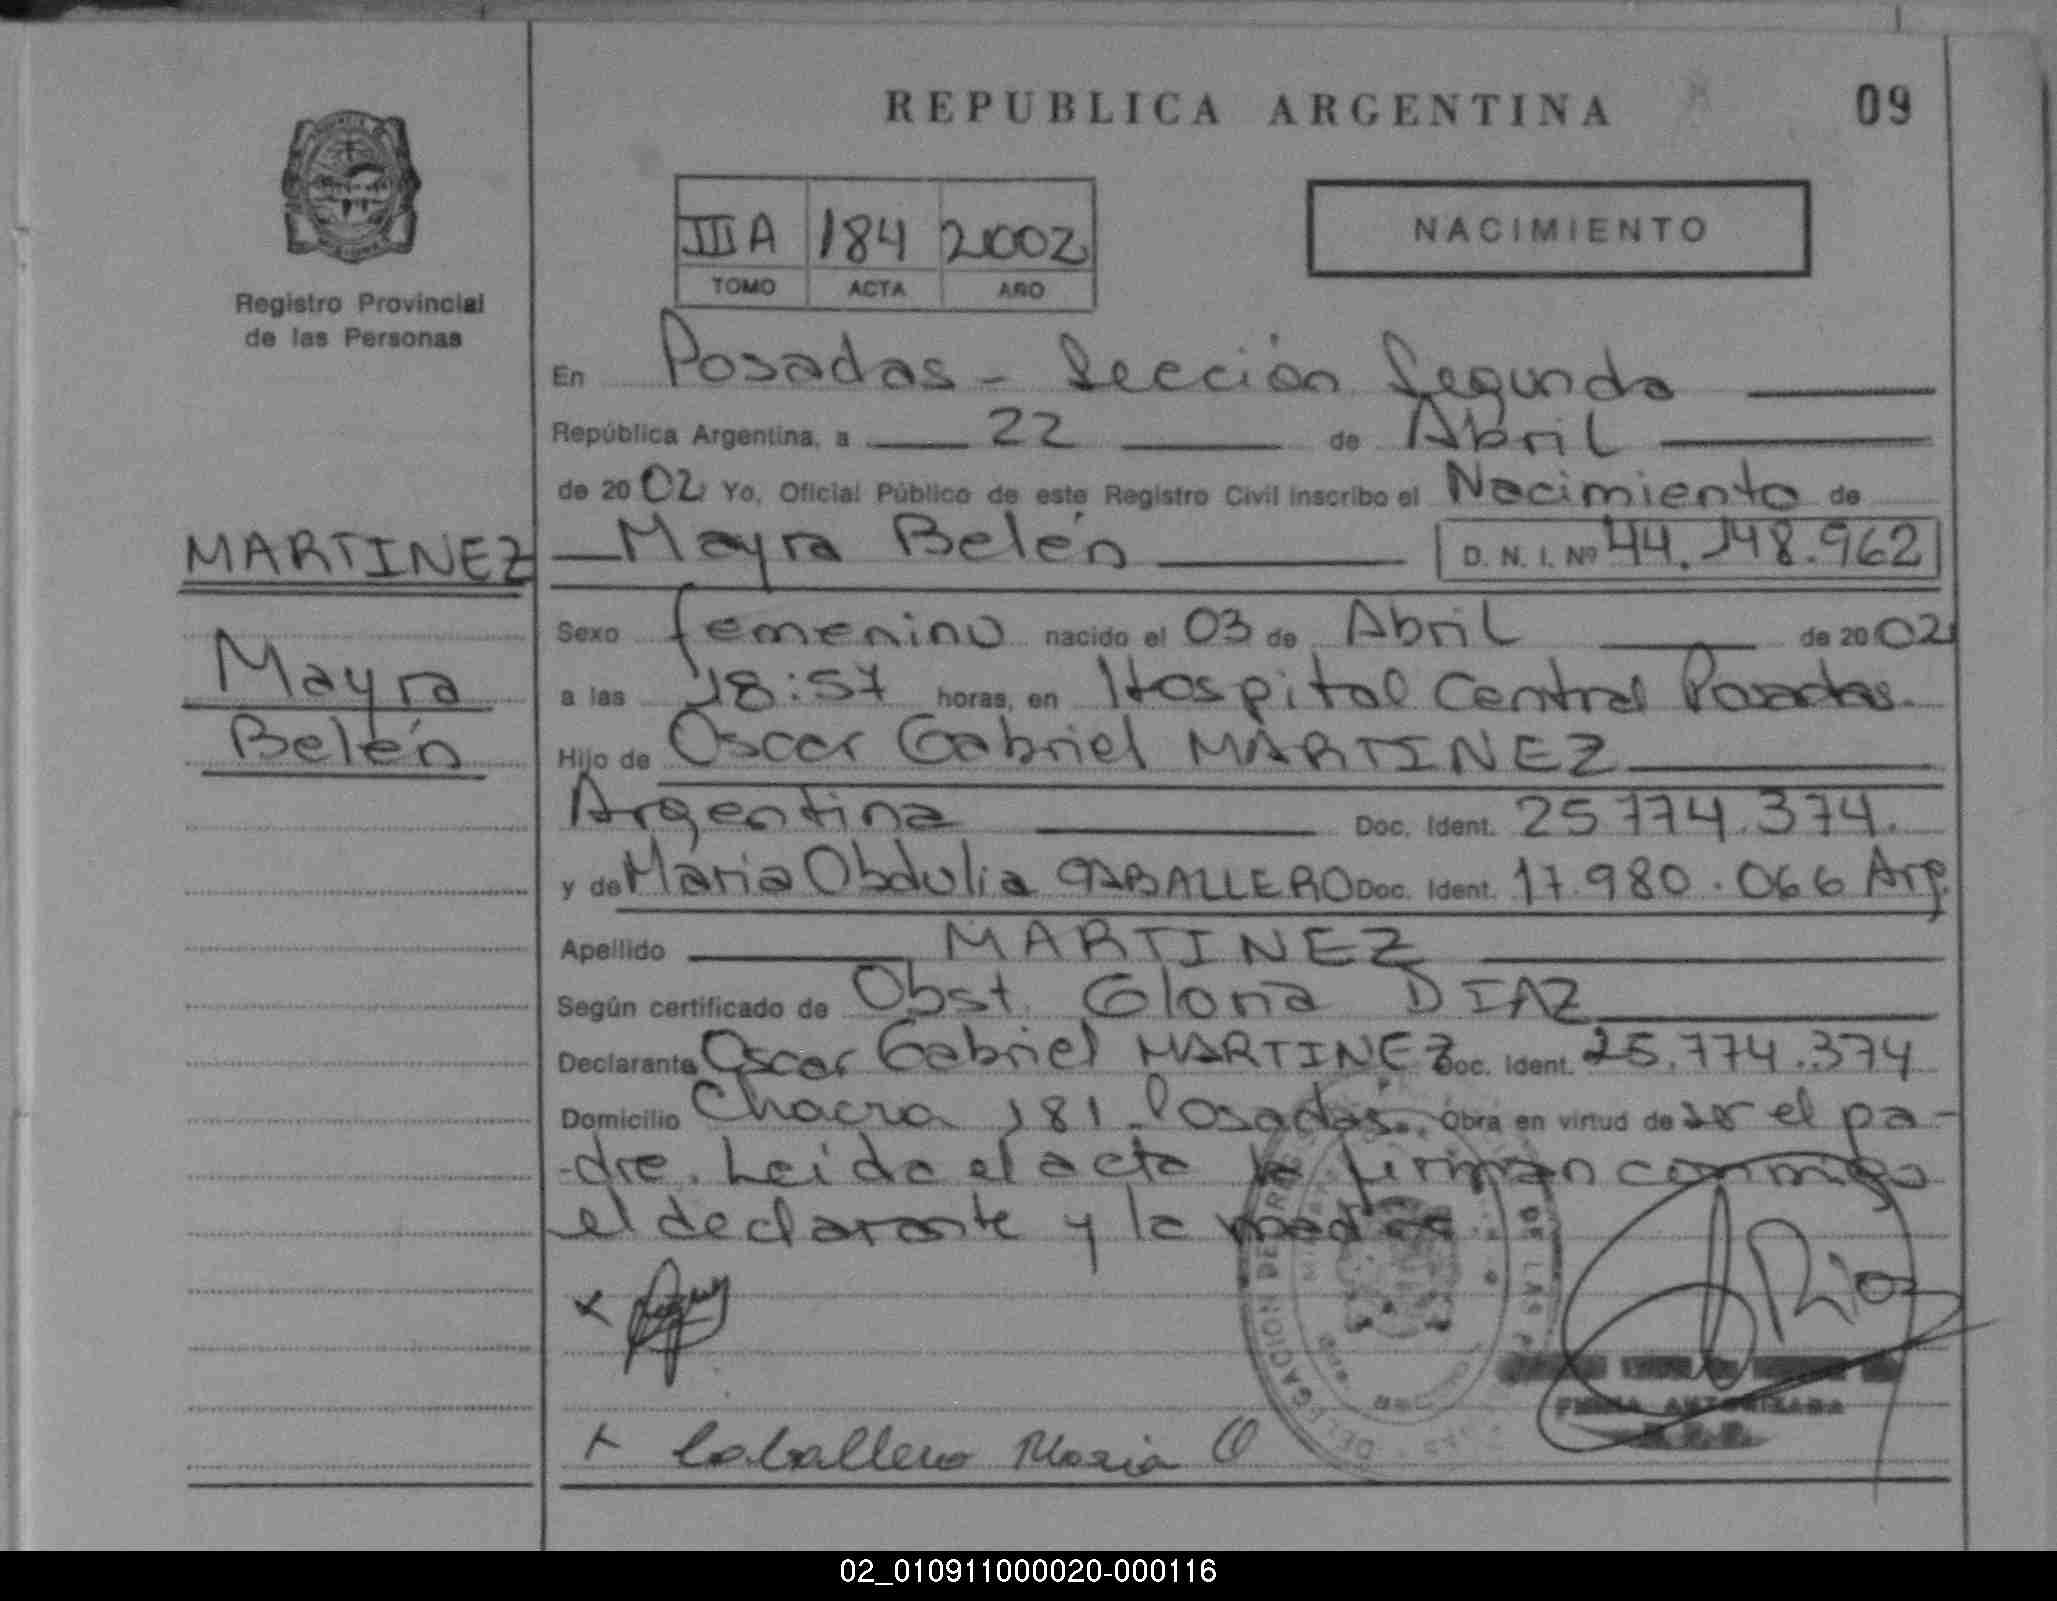 REPUBLICA ARGENTINA
09
Registro Provincial
de las Personas
IIIA 184 2002
TOMO ACTA AÑO
NACIMIENTO
En Posadas - Sección Segunda
República Argentina, a 22 de Abril
de 2002 Yo, Oficial Público de este Registro Civil inscribo el Nacimiento de
MARTINEZ
Mayra
Belén
Mayra Belén D. N. I. Nº 44.148.962
Sexo femenino nacido el 03 de Abril de 2002
a las 18:57 horas, en Hospital Central Posadas.
Hijo de Oscar Gabriel MARTINEZ
Argentina Doc. Ident. 25.774.374.
y de Maria Obdulia CABALLERO Doc. Ident. 17.980.066 Arg.
Apellido MARTINEZ
Según certificado de Obst. Gloria DIAZ
Declarante Oscar Gabriel MARTINEZ Doc. Ident. 25.774.374
Domicilio Chacra 181 - Posadas. Obra en virtud de ser el pa-
-dre. Leida el acta la firman conmigo
el declarante y la madre
Rios
FIRMA AUTORIZADA
x Caballero Maria O
02_010911000020-000116